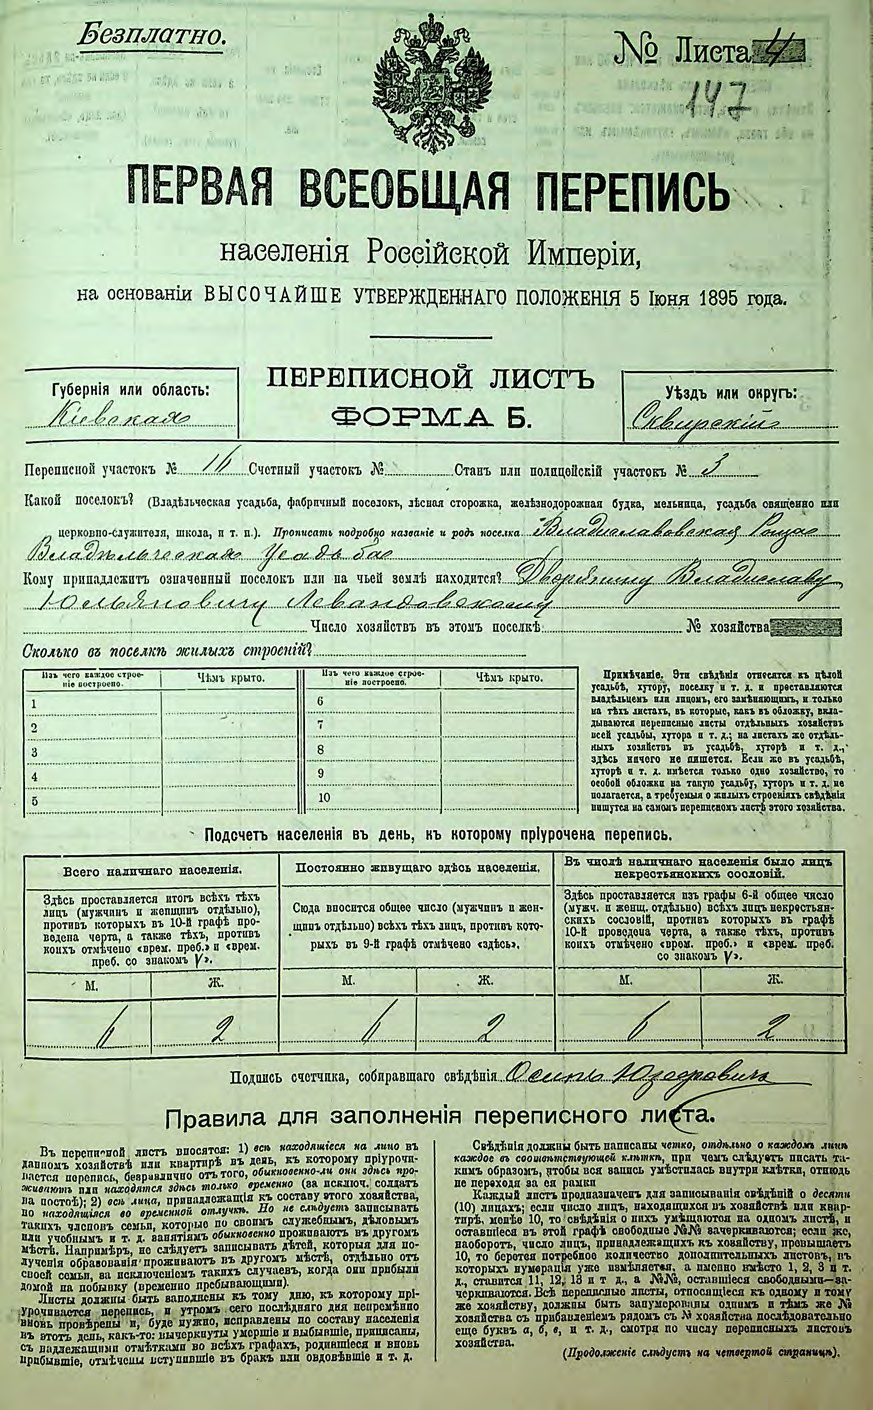 Безплатно.
№ Листа 4
147
ПЕРВАЯ ВСЕОБЩАЯ ПЕРЕПИСЬ
населенія Россійской Имперіи,
на основаніи ВЫСОЧАЙШЕ УТВЕРЖДЕННАГО ПОЛОЖЕНІЯ 5 Іюня 1895 года.
Губернія или область:
Кіевская
ПЕРЕПИСНОЙ ЛИСТЪ
ФОРМА Б.
Уѣздъ или округъ:
Сквирскій
Переписной участокъ № 16 Счетный участокъ № Станъ или полицейскій участокъ № 3
Какой поселокъ? (Владѣльческая усадьба, фабричный поселокъ, лѣсная сторожка, желѣзнодорожная будка, мельница, усадьба священно или
церковно-служителя, школа, и т. п.). Прописать подробно названіе и родъ поселка Владиславовская Роща
Владѣльческая Усадьба
Кому принадлежитъ означенный поселокъ или на чьей землѣ находится? Дворянину Владиславу
Юльяновичу Левандовскому
Число хозяйствъ въ этомъ поселкѣ: № хозяйства
Сколько въ поселкѣ жилыхъ строеній?
Изъ чего каждое строеніе построено. Чѣмъ крыто. Изъ чего каждое строеніе построено. Чѣмъ крыто.
1 6
2 7
3 8
4 9
5 10
Примѣчаніе. Эти свѣдѣнія относятся къ цѣлой
усадьбѣ, хутору, поселку и т. д. и проставляются
владѣльцемъ или лицомъ, его замѣняющимъ, и только
на тѣхъ листахъ, въ которые, какъ въ обложку, вкла-
дываются переписные листы отдѣльныхъ хозяйствъ
всей усадьбы, хутора и т. д.; на листахъ же отдѣль-
ныхъ хозяйствъ въ усадьбѣ, хуторѣ и т. д.,
здѣсь ничего не пишется. Если же въ усадьбѣ,
хуторѣ и т. д. имѣется только одно хозяйство, то
особой обложки на такую усадьбу, хуторъ и т. д. не
полагается, а требуемыя о жилыхъ строеніяхъ свѣдѣнія
пишутся на самомъ переписномъ листѣ этого хозяйства.
Подсчетъ населенія въ день, къ которому пріурочена перепись.
Всего наличнаго населенія.
Здѣсь проставляется итогъ всѣхъ тѣхъ
лицъ (мужчинъ и женщинъ отдѣльно),
противъ которыхъ въ 10-й графѣ про-
ведена черта, а также тѣхъ, противъ
коихъ отмѣчено «врем. преб.» и «врем.
преб. со знакомъ V».
М. Ж.
6 2
Постоянно живущаго здѣсь населенія.
Сюда вносится общее число (мужчинъ и жен-
щинъ отдѣльно) всѣхъ тѣхъ лицъ, противъ кото-
рыхъ въ 9-й графѣ отмѣчено «здѣсь».
М. Ж.
6 2
Въ числѣ наличнаго населенія было лицъ
некрестьянскихъ сословій.
Здѣсь проставляется изъ графы 6-й общее число
(мужч. и женщ. отдѣльно) всѣхъ лицъ некрестьян-
скихъ сословій, противъ которыхъ въ графѣ
10-й проведена черта, а также тѣхъ, противъ
коихъ отмѣчено «врем. преб.» и «врем. преб.
со знакомъ V».
М. Ж.
6 2
Подпись счетчика, собиравшаго свѣдѣнія Осипъ Юзефовичъ
Правила для заполненія переписного листа.
Въ переписной листъ вносятся: 1) всѣ находящіеся на лицо въ
данномъ хозяйствѣ или квартирѣ въ день, къ которому пріурочи-
вается перепись, безразлично отъ того, обыкновенно-ли они здѣсь про-
живаютъ или находятся здѣсь только временно (за исключ. солдатъ
на постоѣ); 2) всѣ лица, принадлежащія къ составу этого хозяйства,
но находящіяся во временной отлучкѣ. Но не слѣдуетъ записывать
такихъ членовъ семьи, которые по своимъ служебнымъ, дѣловымъ
или учебнымъ и т. д. занятіямъ обыкновенно проживаютъ въ другомъ
мѣстѣ. Напримѣръ, не слѣдуетъ записывать дѣтей, которыя для по-
лученія образованія проживаютъ въ другомъ мѣстѣ, отдѣльно отъ
своей семьи, за исключеніемъ такихъ случаевъ, когда они прибыли
домой на побывку (временно пребывающими).
Листы должны быть заполнены къ тому дню, къ которому прі-
урочивается перепись, и утромъ сего послѣдняго дня непремѣнно
вновь провѣрены и, буде нужно, исправлены по составу населенія
въ этотъ день, какъ-то: вычеркнуты умершіе и выбывшіе, приписаны,
съ надлежащими отмѣтками во всѣхъ графахъ, родившіеся и вновь
прибывшіе, отмѣчены вступившіе въ бракъ или овдовѣвшіе и т. д.
Свѣдѣнія должны быть написаны четко, отдѣльно о каждомъ лицѣ
каждое въ соотвѣтствующей клѣткѣ, при чемъ слѣдуетъ писать та-
кимъ образомъ, чтобы вся запись умѣстилась внутри клѣтки, отнюдь
не переходя за ея рамки
Каждый листъ предназначенъ для записыванія свѣдѣній о десяти
(10) лицахъ; если число лицъ, находящихся въ хозяйствѣ или квар-
тирѣ, менѣе 10, то свѣдѣнія о нихъ умѣщаются на одномъ листѣ, и
оставшіеся въ этой графѣ свободные №№ зачеркиваются; если же,
наоборотъ, число лицъ, принадлежащихъ къ хозяйству, превышаетъ
10, то берется потребное количество дополнительныхъ листовъ, въ
которыхъ нумерація уже измѣняется, а именно вмѣсто 1, 2, 3 и т.
д., ставится 11, 12, 13 и т. д., а №№, оставшіеся свободными—за-
черкиваются. Всѣ переписные листы, относящіеся къ одному и тому
же хозяйству, должны быть занумерованы однимъ и тѣмъ же №
хозяйства съ прибавленіемъ рядомъ съ № хозяйства послѣдовательно
еще буквъ а, б, в, и т. д., смотря по числу переписныхъ листовъ
хозяйства.
(Продолженіе слѣдуетъ на четвертой страницѣ).